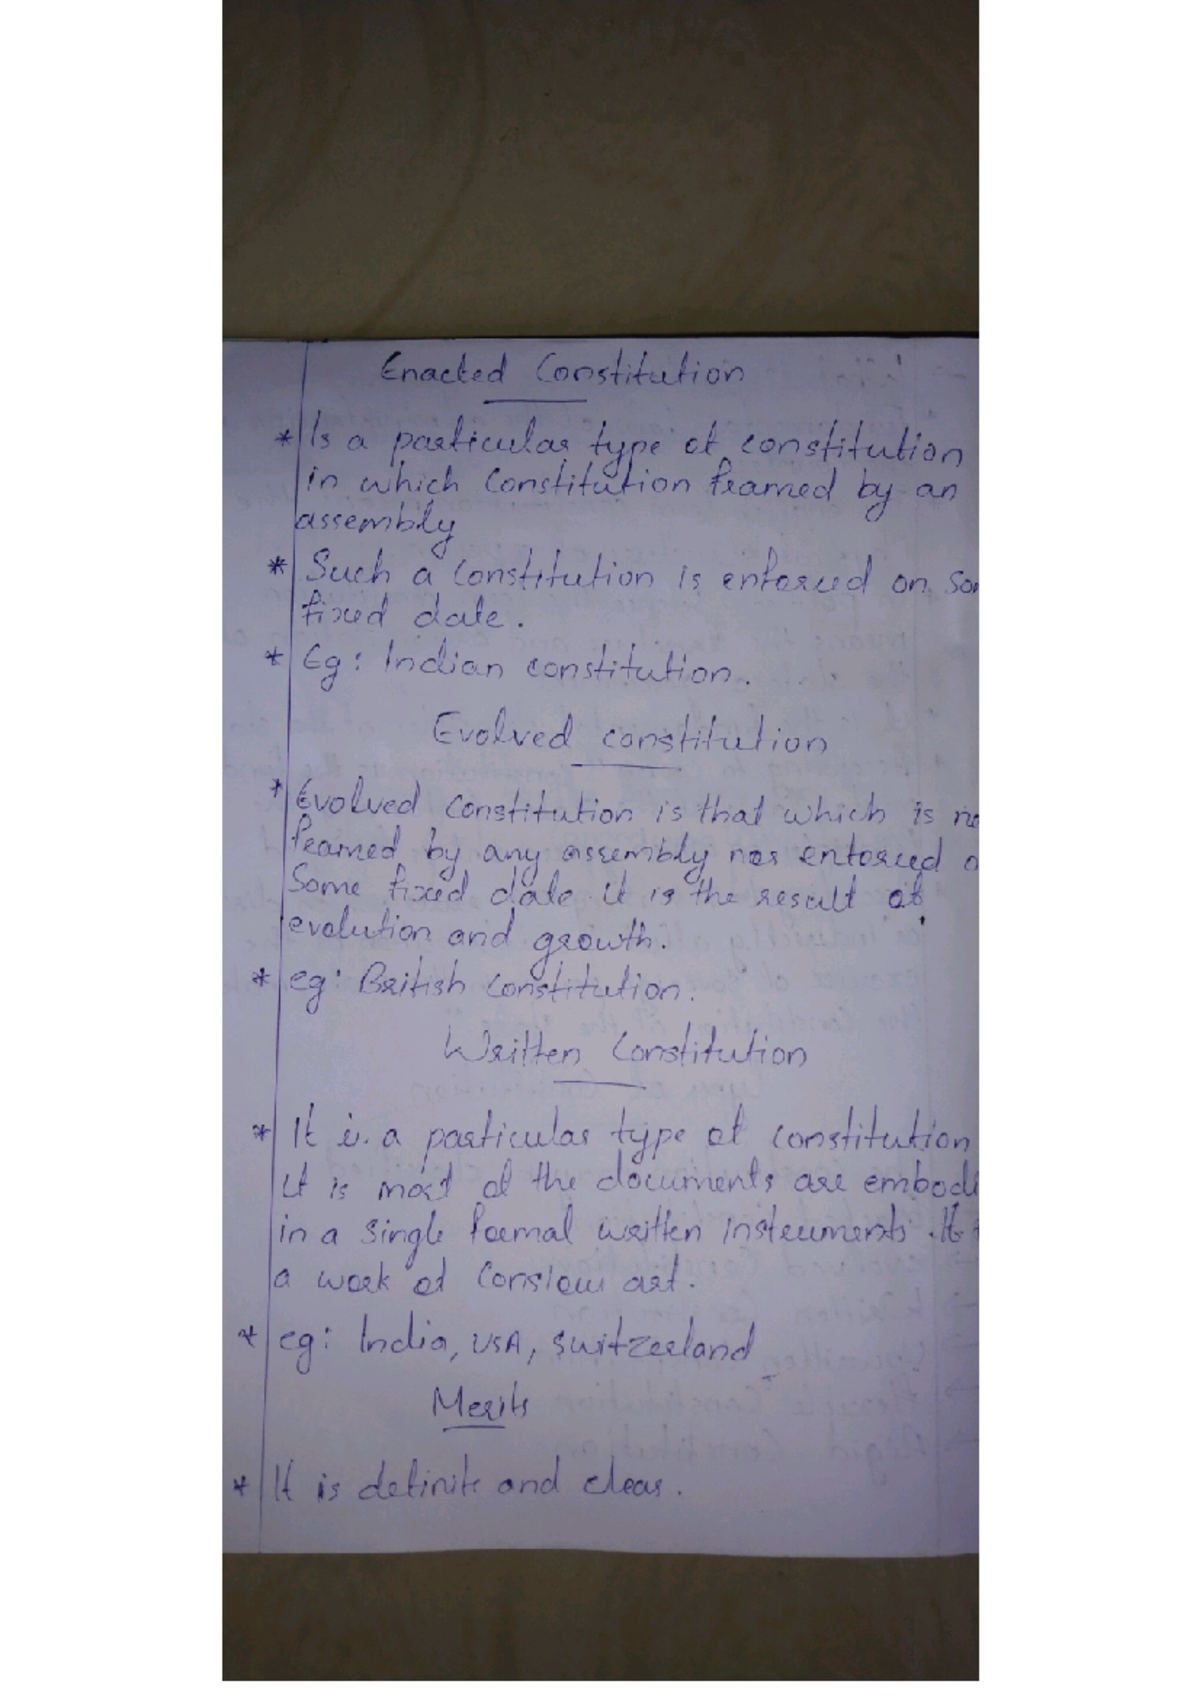 Enacted Constitution
* Is a particular type of constitution
in which Constitution framed by an
assembly
* Such a constitution is enforced on
fixed date.
* Eg: Indian constitution.
Evolved constitution
* Evolved constitution is that which is
framed by any assembly nor enforced
Some fixed date it is the result of
evolution and growth.
* eg: British constitution.
Written Constitution
* It is a particular type of constitution
it is most of the documents are
in a single formal written instruments. It
a work of art.
* eg: India, USA, Switzerland
Merits
* It is definite and clear.